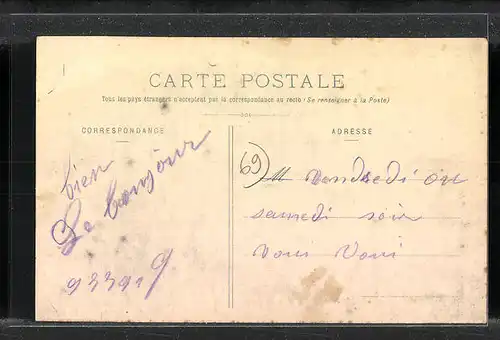 CARTE POSTALE
Tous les pays étrangers n'acceptent pas la correspondance au recto (Se renseigner à la Poste)
CORRESPONDANCE
bien
Le bonjour
ADRESSE
69
M Vendredi ou
samedi soir
vous